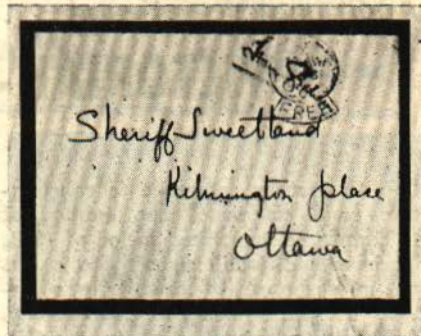 FREE
Sheriff Sweetland
Kilmington place
Ottawa